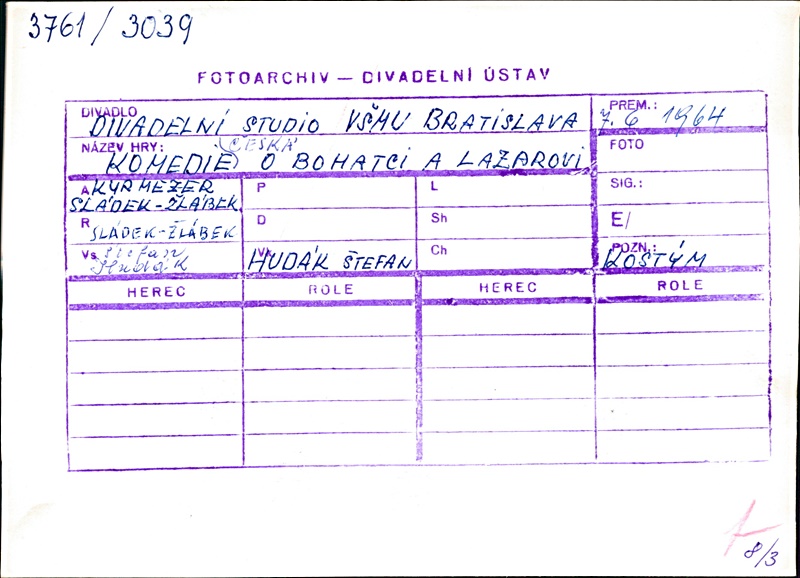 3761 / 3039
FOTOARCHIV — DIVADELNÍ ÚSTAV
DIVADLO DIVADELNÍ STUDIO VŠMU BRATISLAVA
PREM.: 7. 6 1964
NÁZEV HRY: KOMEDIE (ČESKÁ) O BOHATCI A LAZAROVI
FOTO
A KYRMEZER
SLÁDEK-ŽLÁBEK
P
L
SIG.:
R SLÁDEK-ŽLÁBEK
D
Sh
E/
Vs Štefan
Hudák
V HUDÁK ŠTEFAN
Ch
POZN.: KOSTÝM
HEREC ROLE HEREC ROLE
8/3